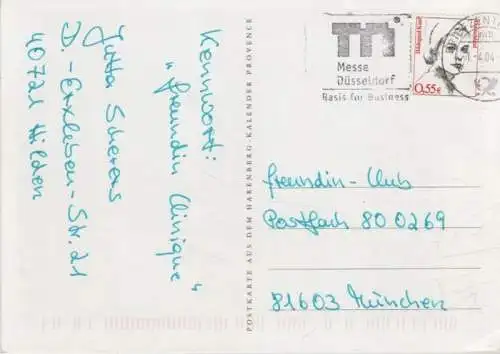 Kennwort:
„freundin Clinique"
Jutta Scherers
D.-Erxleben-Str. 21
40721 Hilden
POSTKARTE AUS DEM HARENBERG-KALENDER PROVENCE
Messe
Düsseldorf
Basis for Business
Hildegard Knef
0,55€
freundin-Club
Postfach 80 02 69
81603 München